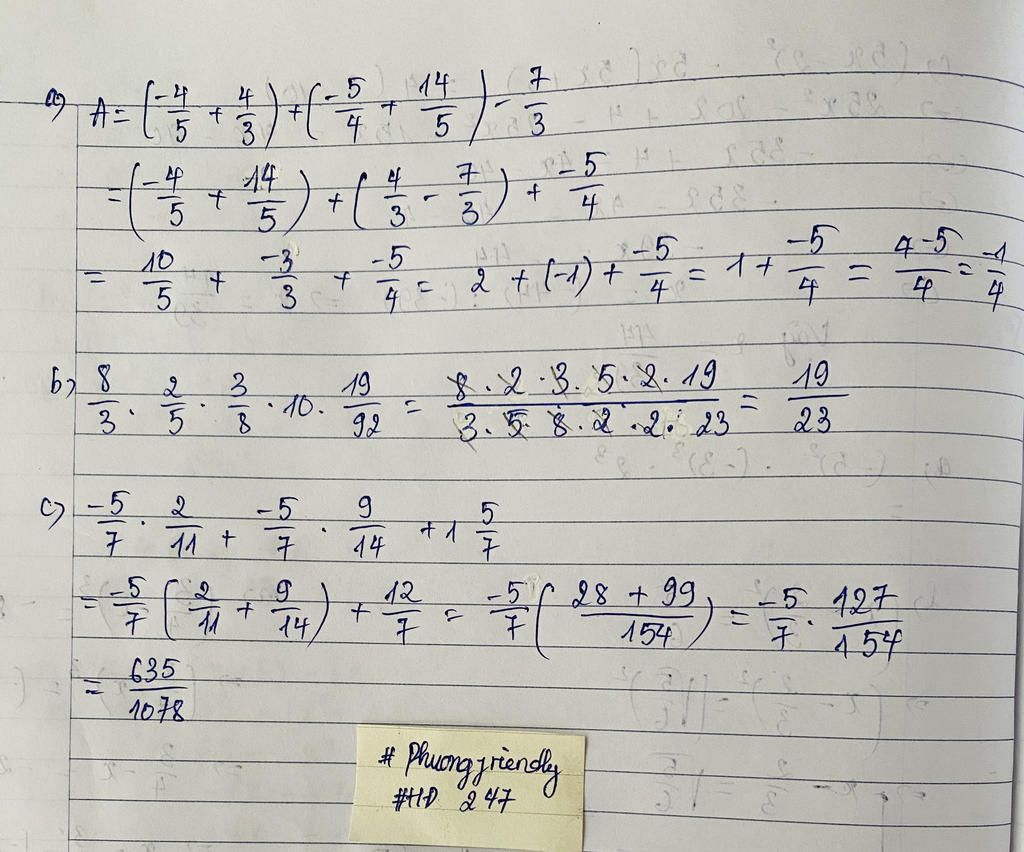 a) A = (-4/5 + 4/3) + (-5/4 + 14/5) - 7/3
= (-4/5 + 14/5) + (4/3 - 7/3) + -5/4
= 10/5 + -3/3 + -5/4 = 2 + (-1) + -5/4 = 1 + -5/4 = 4-5/4 = -1/4
b) 8/3 . 2/5 . 3/8 . 10 . 19/92 = 8 . 2 . 3 . 5 . 2 . 19/3 . 5 . 8 . 2 . 2 . 23 = 19/23
c) -5/7 . 2/11 + -5/7 . 9/14 + 1 5/7
= -5/7 (2/11 + 9/14) + 12/7 = -5/7 (28 + 99/154) = -5/7 . 127/154
= 635/1078
# Phuongfriendly
#HD 247